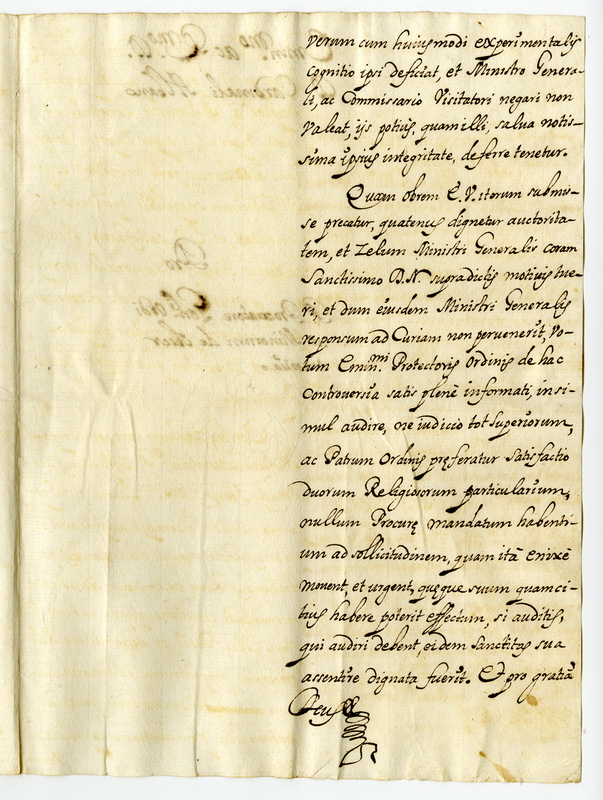 Verum cum huiusmodi experimentalis
Cognitio ipsi deficiat, et Ministro Genera-
li, ac Commissario Visitatori negari non
Valeat, ijs potius, quam illi, salua notis-
sima ipsius integritate, deferre tenetur.
Quam obrem E.V. iterum submis-
se precatur, quatenus dignetur auctorita-
tem, et Zelum Ministri Generalis coram
Sanctissimo D.N. supradictis motiuis tue-
ri, et dum eiusdem Ministri Generalis
responsum ad Curiam non peruenerit, Vo-
tum Emin.mi Protectoris Ordinis de hac
Controuersia satis plenè informati, insi-
mul audire, ne iudicio tot Superiorum,
ac Patrum Ordinis pręferatur Satisfactio
duorum Religiosorum particularium,
nullum Procurę mandatum habenti-
um ad sollicitudinem, quam ità enixè
mouent, et urgent, quęque suum quamci-
tius habere poterit effectum, si auditis,
qui audiri debent, eidem Sanctitas sua
assentire dignata fuerit. Et pro gratia
Deus